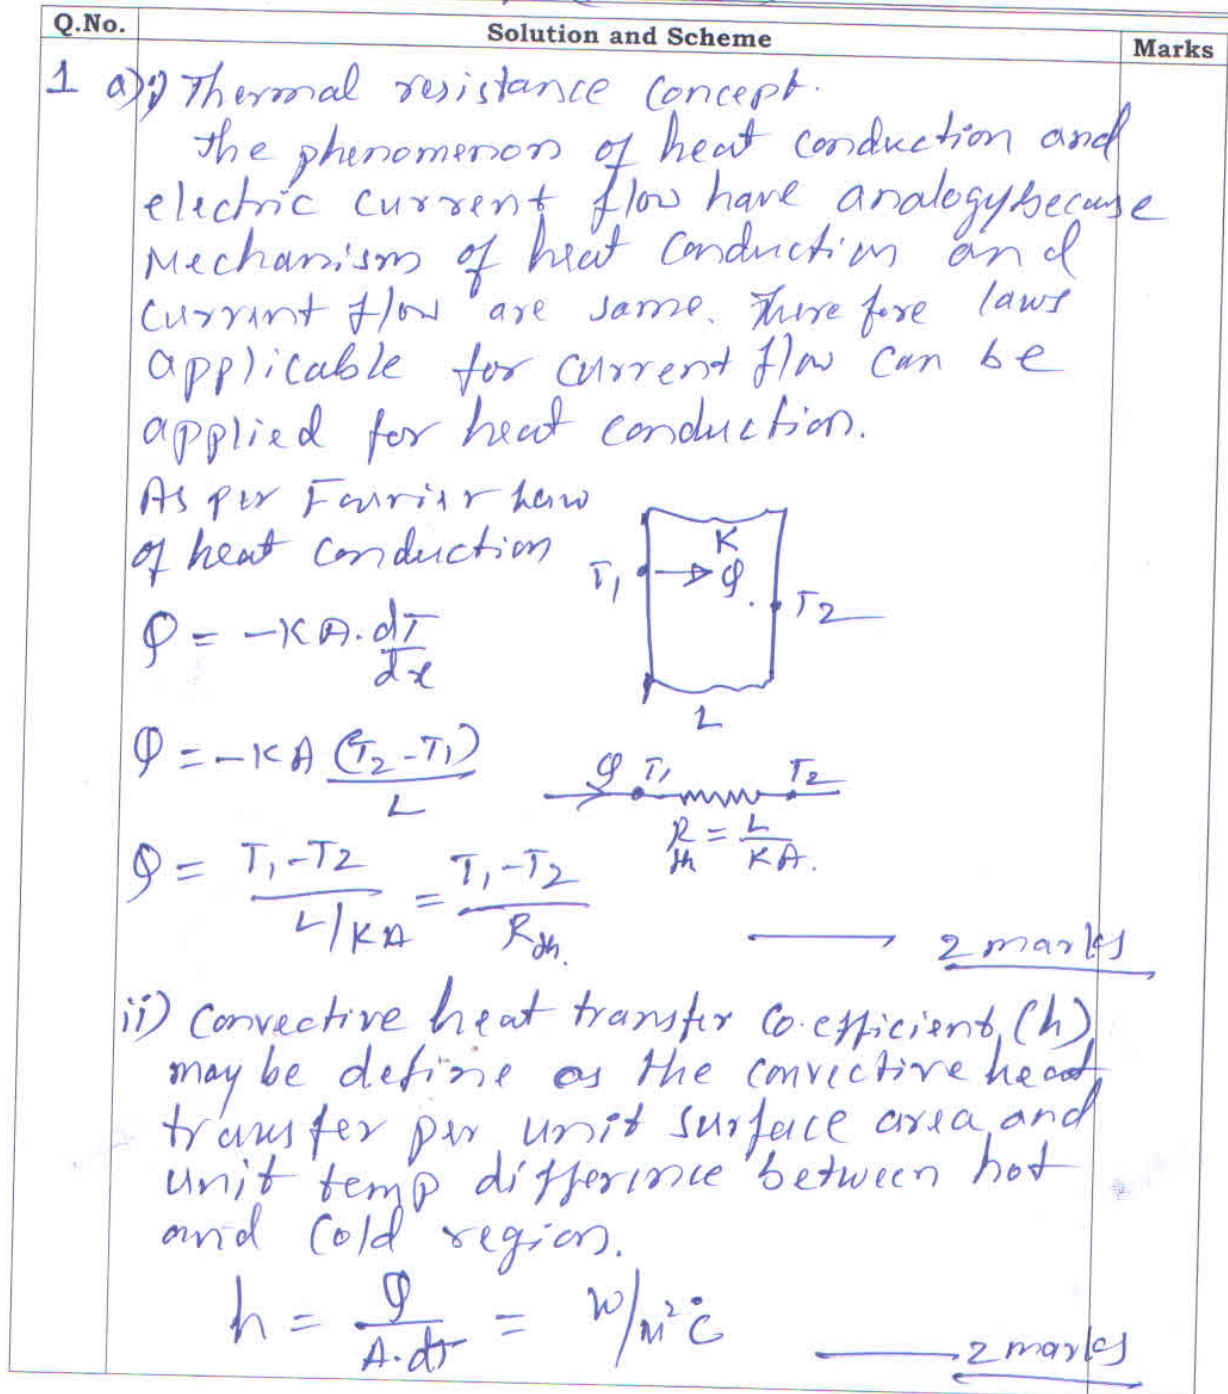 Q.No. Solution and Scheme Marks
1 a) i) Thermal resistance concept.
The phenomenon of heat conduction and
electric current flow have analogy because
Mechanism of heat conduction and
current flow are same. There fore laws
applicable for current flow can be
applied for heat conduction.
As per Fourier law
of heat conduction
K
T1 Q. T2
Q = -KA. dT/dx
L
Q = -KA (T2-T1)/L
Q T1 T2
Rth = L/KA.
Q = T1-T2 / L/KA = T1-T2 / Rth.
2 marks
ii) Convective heat transfer Co.efficient (h)
may be define as the convective heat
transfer per unit surface area and
unit temp difference between hot
and cold region.
h = Q/A.dT = W/m²°C
2 marks